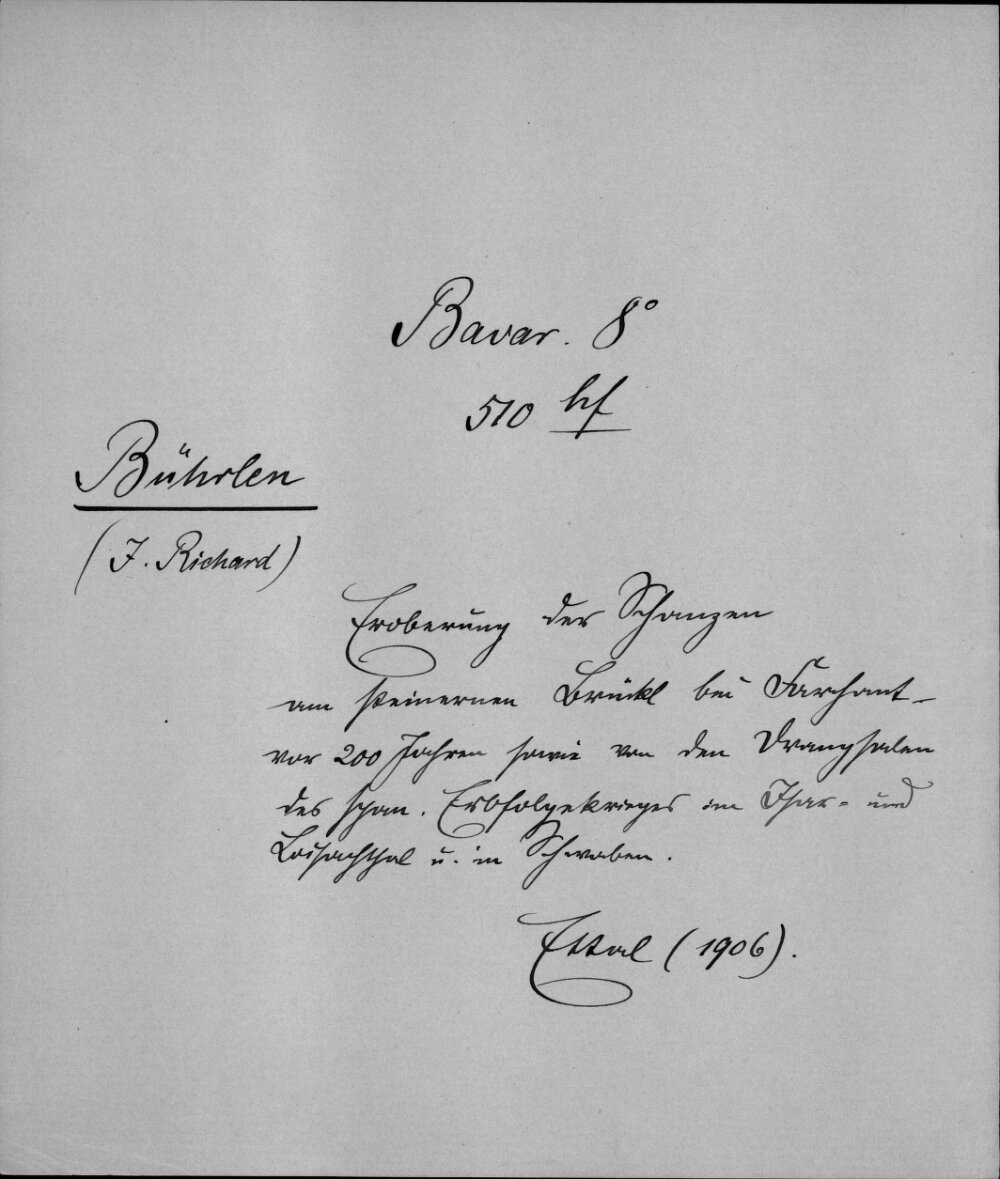 Bavar. 8°
510 hf
Bührlen
(J. Richard)
Eroberung der Schanzen
am steinernen Brückl bei Farchant
vor 200 Jahren sowie von den Drangsalen
des span. Erbfolgekrieges im Isar- und
Loisachthal u. in Schwaben.
Ettal (1906).